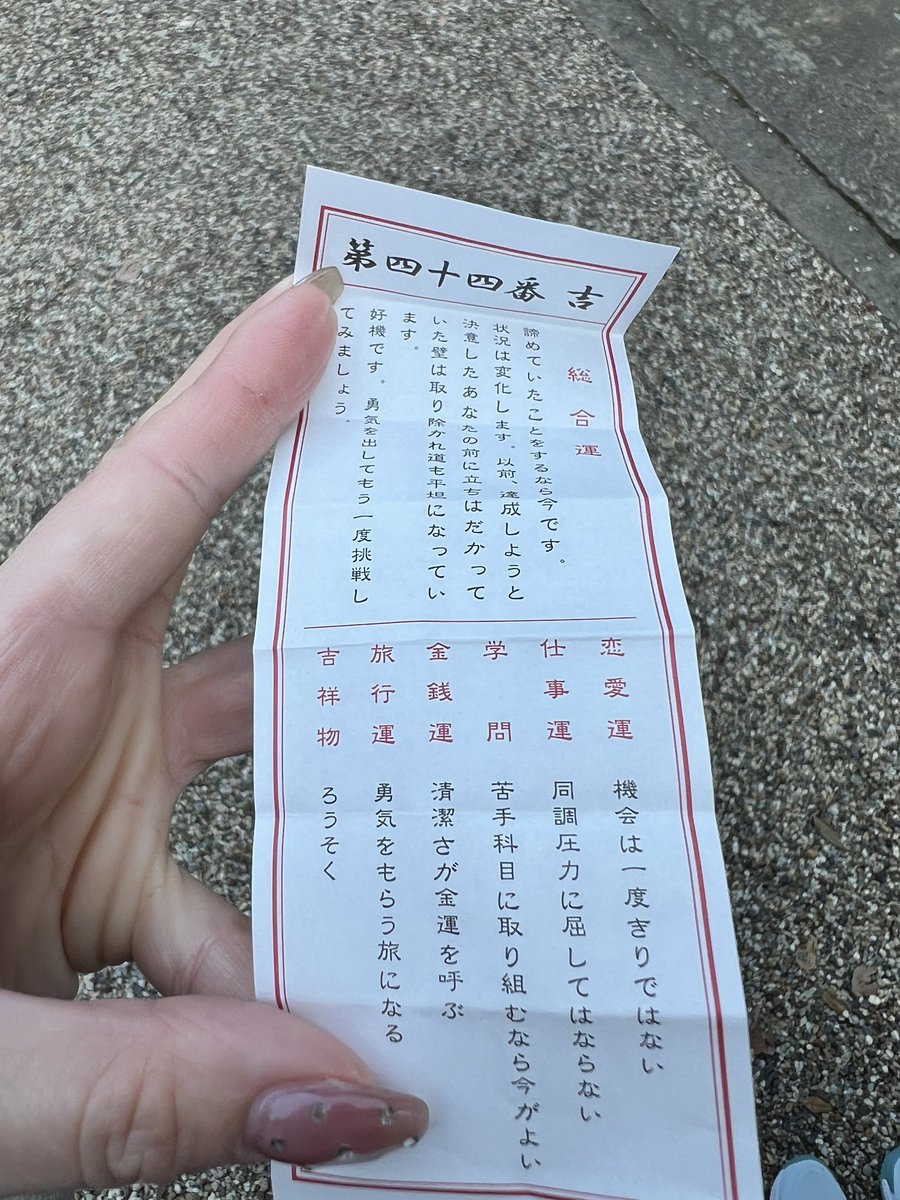 第四十四番 吉
総合運
諦めていたことをするなら今です。
状況は変化します。以前、達成しようと
決意したあなたの前に立ちはだかって
いた壁は取り除かれ道も平坦になってい
ます。
好機です。勇気を出してもう一度挑戦し
てみましょう。
恋愛運 機会は一度きりではない
仕事運 同調圧力に屈してはならない
学問 苦手科目に取り組むなら今がよい
金銭運 清潔さが金運を呼ぶ
旅行運 勇気をもらう旅になる
吉祥物 ろうそく